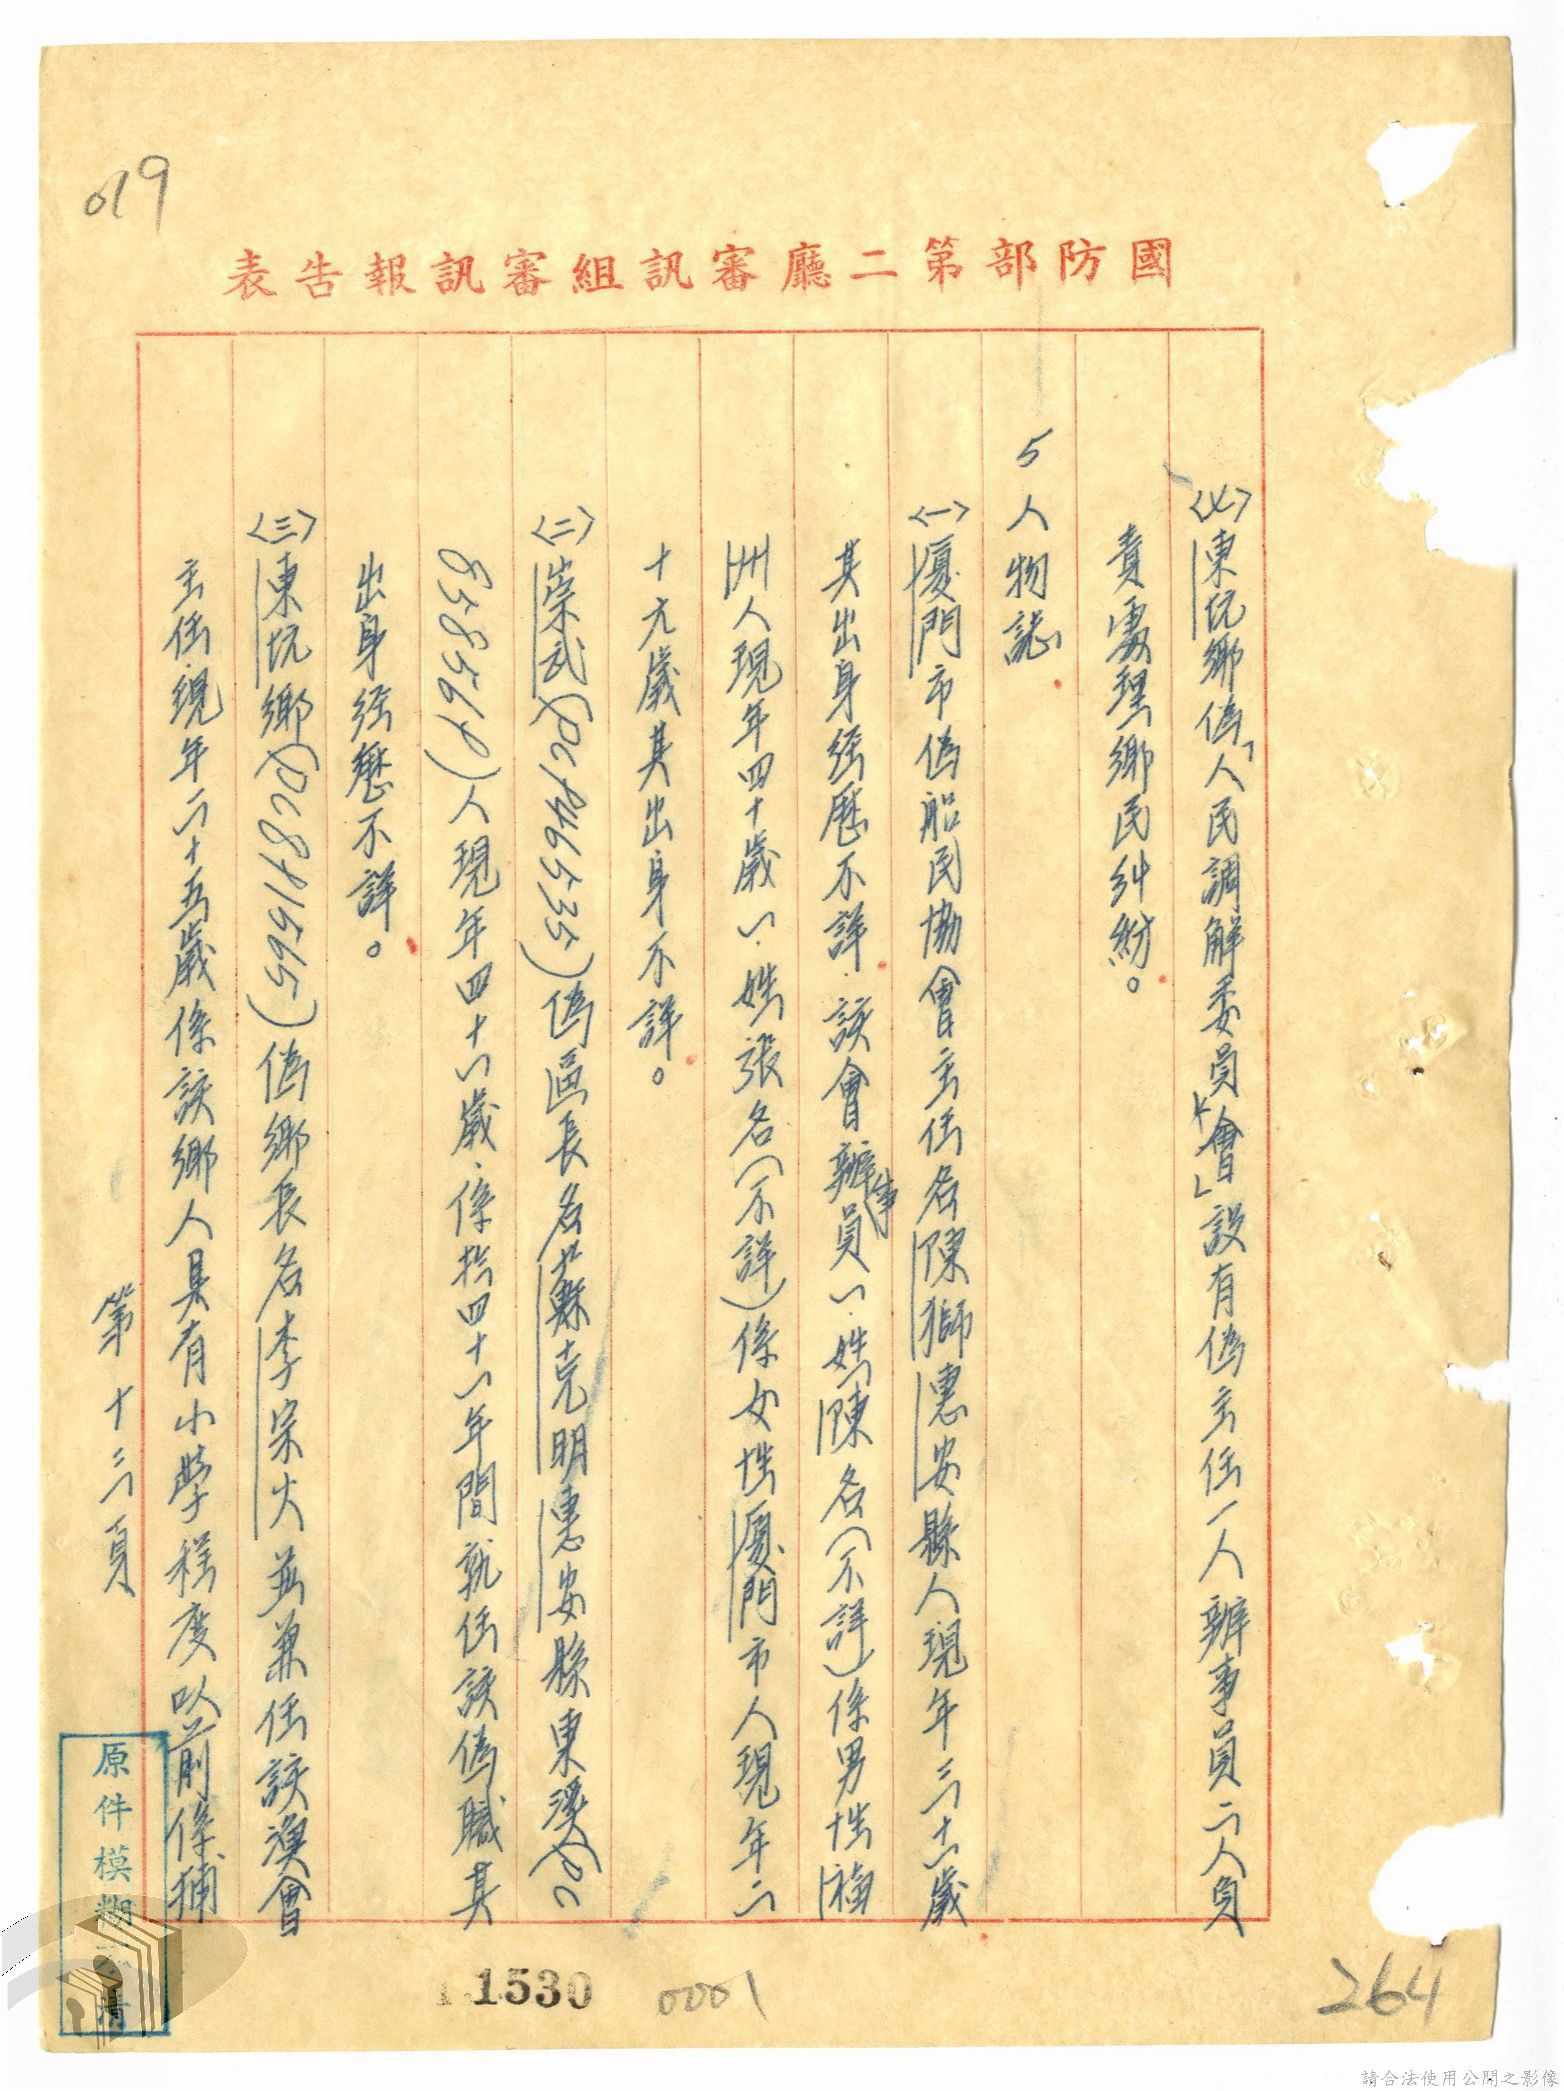 019
國防部第二廳審訊組審訊報告表
〈七〉東坑鄉偽「人民調解委員會」設有偽主任一人辦事員二人負
責處理鄉民糾紛。
5 人物誌
〈一〉廈門市偽船民協會主任名陳獅惠安縣人現年三十六歲
其出身經歷不詳.該會辦事員一.姓陳名(不詳)係男性福
州人現年四十歲一.姓張名(不詳)係女性廈門市人現年二
十九歲其出身不詳。
〈二〉崇武偽區長名蘇克明惠安縣東溪
人現年四十八歲.係於四十一年間就任該偽職其
出身經歷不詳。
〈三〉東坑鄉偽鄉長名李宗火並兼任該漁會
主任.現年二十五歲係該鄉人具有小學程度以前係捕
第十三頁
原件模糊不清
11530
0001
264
請合法使用公開之影像